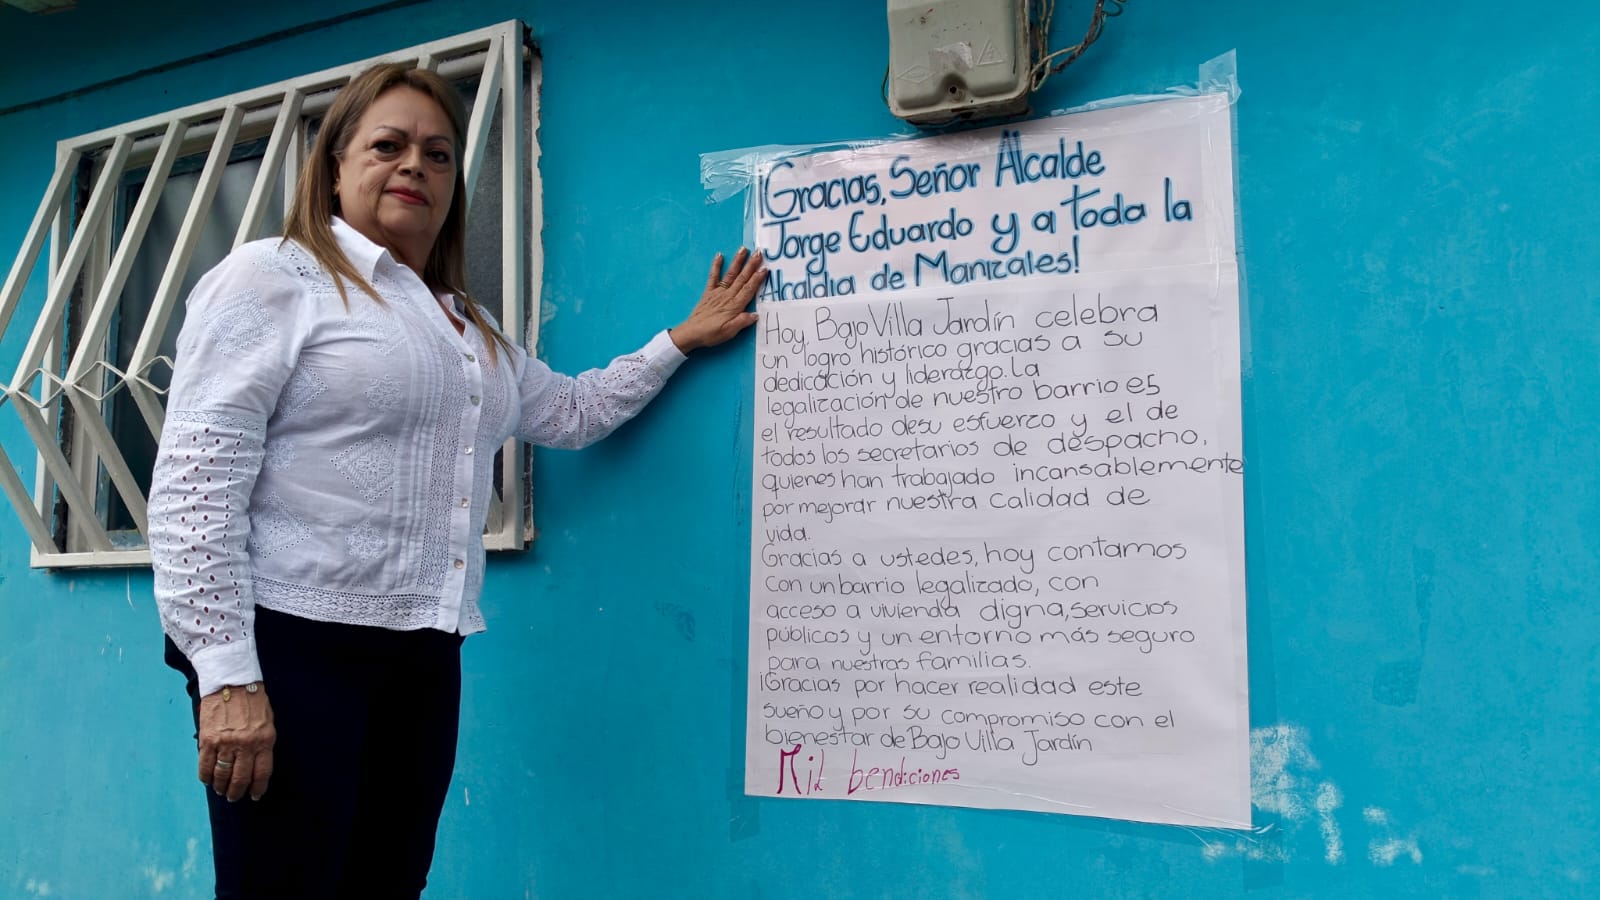 ¡Gracias, Señor Alcalde
Jorge Eduardo y a toda la
Alcaldia de Manizales!
Hoy, Bajo Villa Jardín celebra
un logro histórico gracias a su
dedicación y liderazgo. La
legalización de nuestro barrio es
el resultado de su esfuerzo y el de
todos los secretarios de despacho,
quienes han trabajado incansablemente
por mejorar nuestra calidad de
vida.
Gracias a ustedes, hoy contamos
con un barrio legalizado, con
acceso a vivienda digna, servicios
públicos y un entorno más seguro
para nuestras familias.
¡Gracias por hacer realidad este
sueño y por su compromiso con el
bienestar de Bajo Villa Jardín
Mil bendiciones